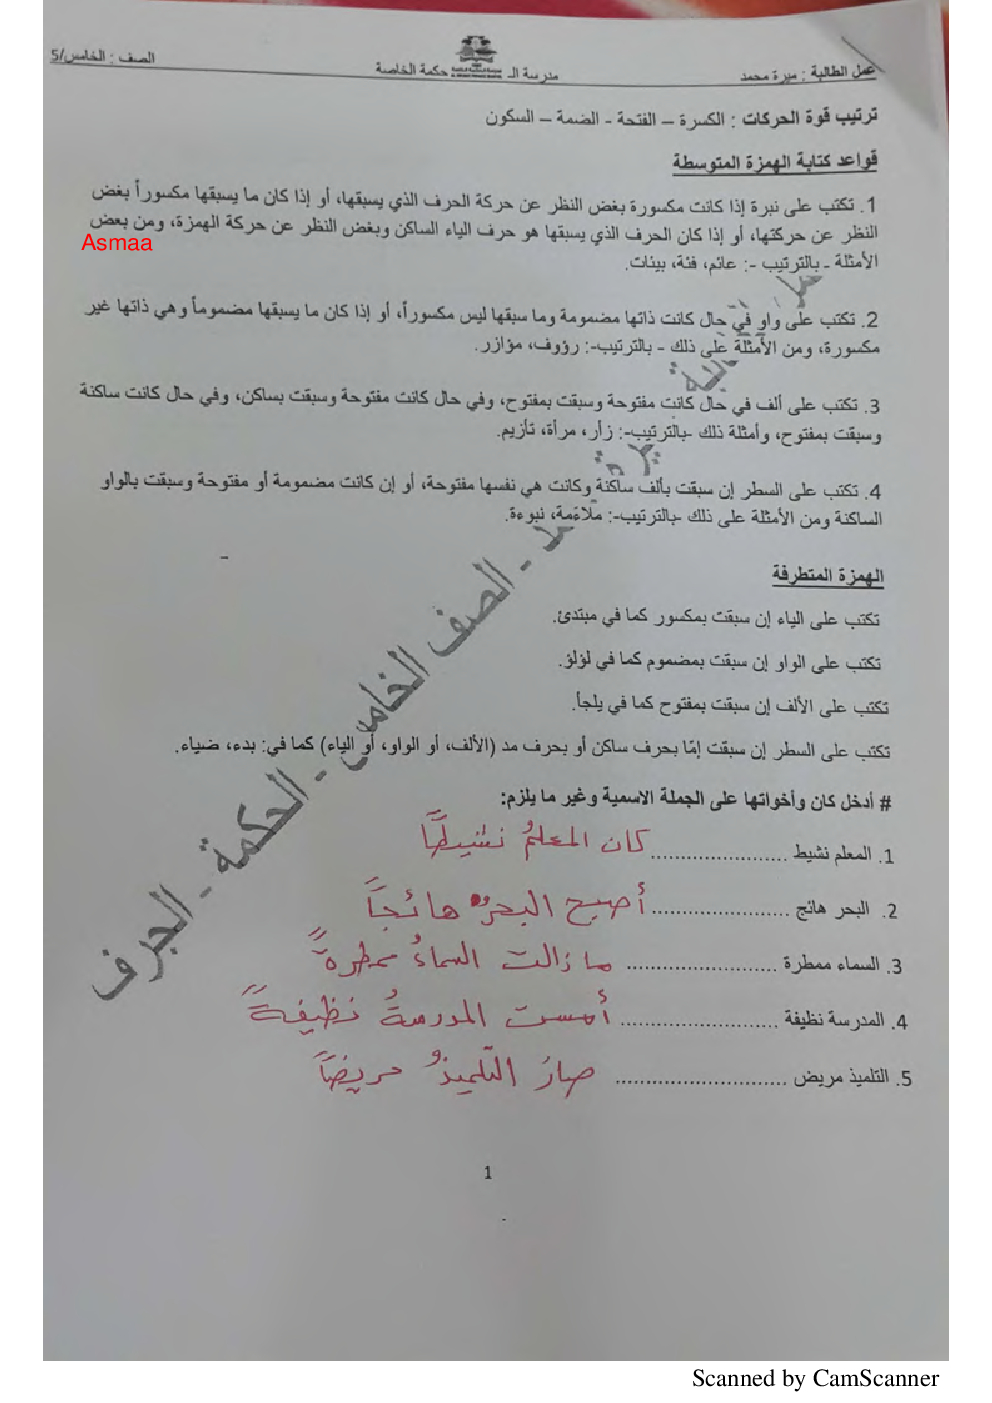 عمل الطالبة : ميرة محمد
مدرسة الـ حكمة الخاصة
الصف : الخامس/5
ترتيب قوة الحركات : الكسرة – الفتحة - الضمة – السكون
قواعد كتابة الهمزة المتوسطة
1. تكتب على نبرة إذا كانت مكسورة بغض النظر عن حركة الحرف الذي يسبقها، أو إذا كان ما يسبقها مكسوراً بغض
النظر عن حركتها، أو إذا كان الحرف الذي يسبقها هو حرف الياء الساكن وبغض النظر عن حركة الهمزة، ومن بعض
Asmaa
الأمثلة - بالترتيب -: عائم، فئة، بيئات.
2. تكتب على واو في حال كانت ذاتها مضمومة وما سبقها ليس مكسوراً، أو إذا كان ما يسبقها مضموماً وهي ذاتها غير
مكسورة، ومن الأمثلة على ذلك - بالترتيب-: رؤوف، مؤازر.
3. تكتب على ألف في حال كانت مفتوحة وسبقت بمفتوح، وفي حال كانت مفتوحة وسبقت بساكن، وفي حال كانت ساكنة
وسبقت بمفتوح، وأمثلة ذلك -بالترتيب-: زأر، مرأة، تأزيم.
4. تكتب على السطر إن سبقت بألف ساكنة وكانت هي نفسها مفتوحة، أو إن كانت مضمومة أو مفتوحة وسبقت بالواو
الساكنة ومن الأمثلة على ذلك -بالترتيب-: ملاءمة، نبوءة.
الهمزة المتطرفة
تكتب على الياء إن سبقت بمكسور كما في مبتدئ.
تكتب على الواو إن سبقت بمضموم كما في لؤلؤ.
تكتب على الألف إن سبقت بمفتوح كما في يلجأ.
تكتب على السطر إن سبقت إمّا بحرف ساكن أو بحرف مد (الألف، أو الواو، أو الياء) كما في: بدء، ضياء.
- الصف الخامس - الحكمة - الجرف
# أدخل كان وأخواتها على الجملة الاسمية وغير ما يلزم:
1. المعلم نشيط ....................... كان المعلمُ نشيطًا
2. البحر هائج ....................... أصبح البحرُ هائجاً
3. السماء ممطرة ......................... ما زالت السماءُ ممطرةً
4. المدرسة نظيفة .......................... أمست المدرسةُ نظيفةً
5. التلميذ مريض ............................ صارَ التّلميذُ مريضاً
1
Scanned by CamScanner